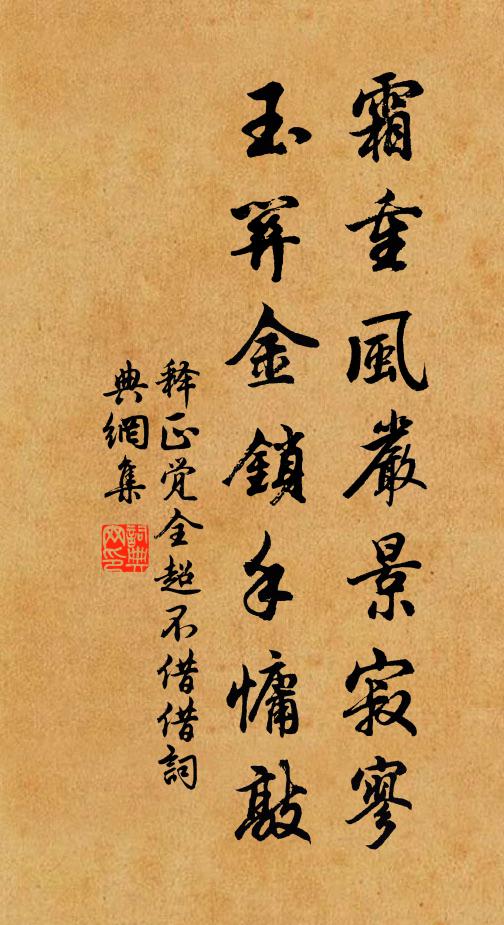 霜重風嚴景寂寥
玉關金鎖手慵敲
释正觉全超不借借詞
典網集
詞典網印